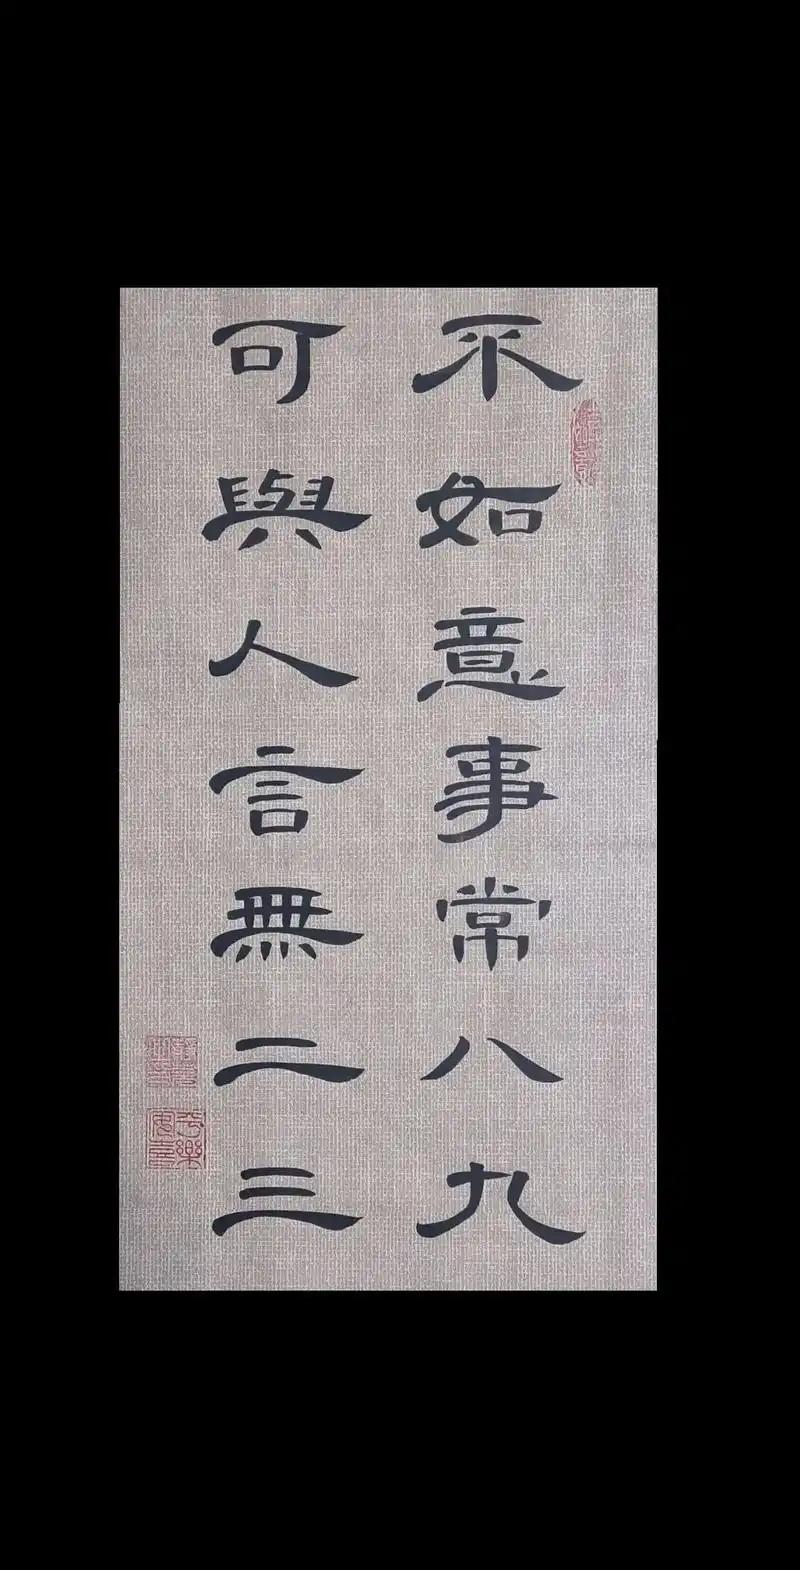 不如意事常八九
可與人言無二三